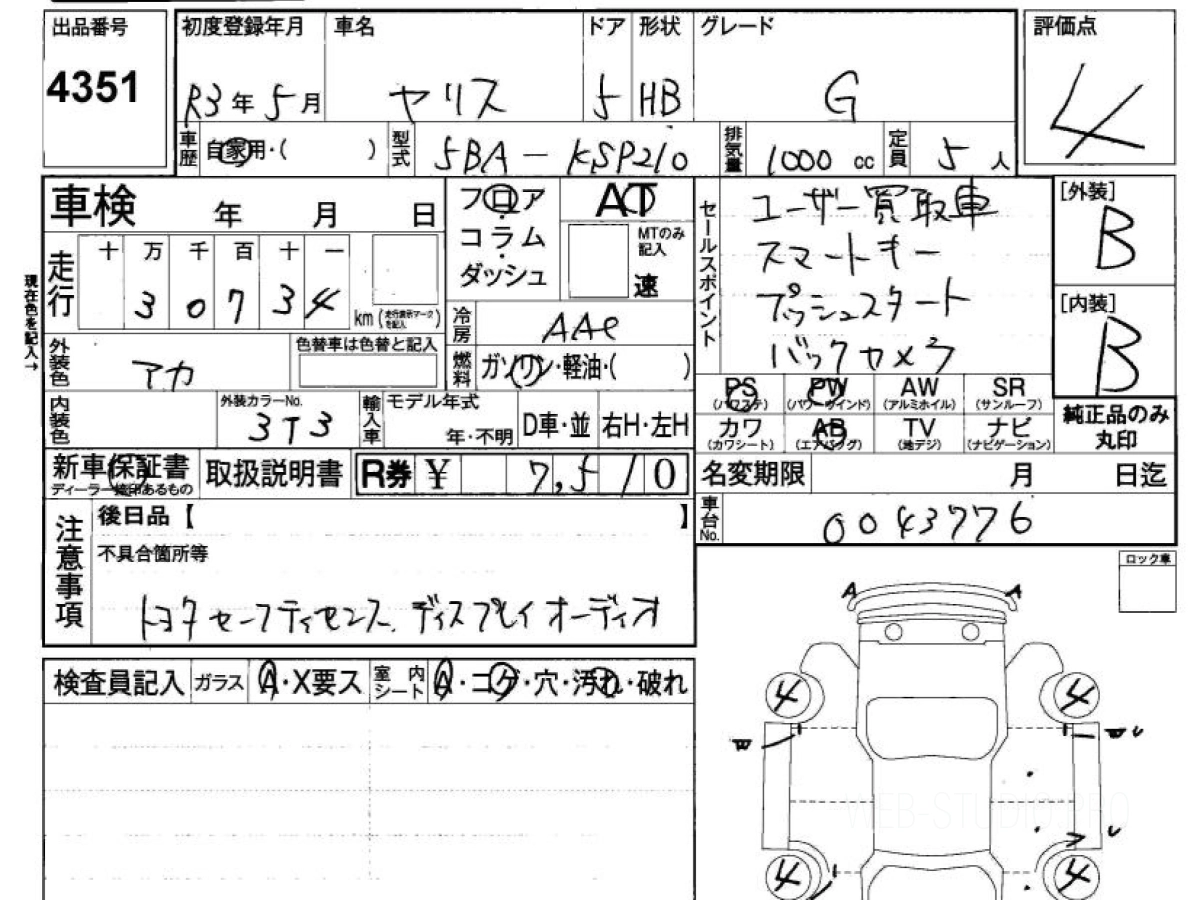 出品番号
4351
初度登録年月 車名 ドア 形状 グレード
R3年5月 ヤリス 5 HB G
評価点
4
車歴 自家用・( ) 型式 5BA-KSP210 排気量 1000 cc 定員 5 人
車検 年 月 日
フロア
コラム
ダッシュ
AT
MTのみ記入
速
セールスポイント
ユーザー買取車
スマートキー
プッシュスタート
バックカメラ
[外装]
B
[内装]
B
現在色を記入→
走行 十 万 千 百 十 一
3 0 7 3 4 km (走行表示マークを記入)
冷房 AAC
外装色 アカ 色替車は色替と記入
燃料 ガソリン・軽油・( )
PS (パワステ) PW (パワーウインド) AW (アルミホイル) SR (サンルーフ)
カワ (カワシート) AB (エアバッグ) TV (地デジ) ナビ (ナビゲーション)
純正品のみ
丸印
内装色 外装カラーNo. 3T3 輸入車 モデル年式 年・不明 D車・並 右H・左H
新車保証書 ディーラー捺印あるもの 取扱説明書 R券 ¥ 7,510
名変期限 月 日迄
車台No. 0043776
注意事項
後日品【 】
不具合箇所等
トヨタセーフティセンス、ディスプレイオーディオ
ロック車
検査員記入 ガラス A・X要ス 室内シート A・コゲ・穴・汚れ・破れ
A A
4 4
W W U
U
4 4
WEB-STUDIO.PRO